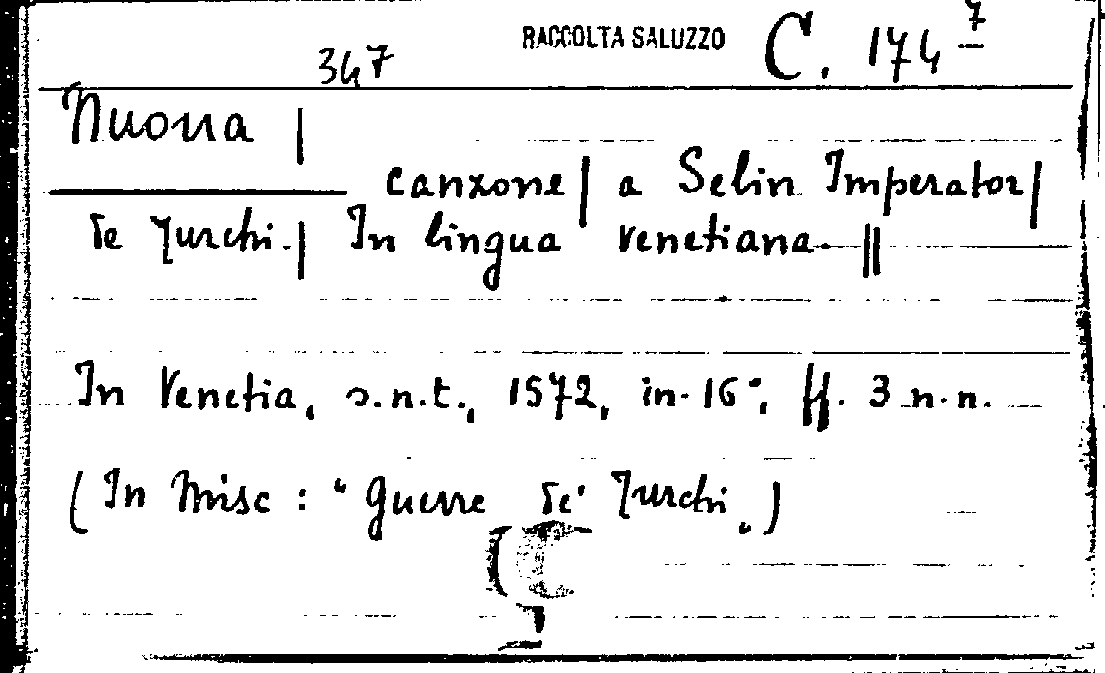 RACCOLTA SALUZZO C. 174 7
347
Nuova |
canzone | a Selin Imperator |
de Turchi. | In lingua venetiana. ||
In Venetia, s.n.t., 1572, in-16°, ff. 3 n.n.
(In Misc : “Guerre de' Turchi„)